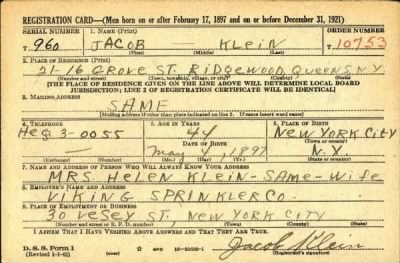 REGISTRATION CARD—(Men born on or after February 17, 1897 and on or before December 31, 1921)
SERIAL NUMBER 1. NAME (Print) ORDER NUMBER
T 960 JACOB — KLEIN T 10753
(First) (Middle) (Last)
2. PLACE OF RESIDENCE (Print)
21-16 GROVE ST. RIDGEWOOD, QUEENS N.Y.
(Number and street) (Town, township, village, or city) (County) (State)
[THE PLACE OF RESIDENCE GIVEN ON THE LINE ABOVE WILL DETERMINE LOCAL BOARD
JURISDICTION; LINE 2 OF REGISTRATION CERTIFICATE WILL BE IDENTICAL]
3. MAILING ADDRESS
SAME
[Mailing address if other than place indicated on line 2. If same insert word same]
4. TELEPHONE 5. AGE IN YEARS 6. PLACE OF BIRTH
Heg 3-0055 44 NEW YORK CITY
DATE OF BIRTH (Town or county)
May 4 1897 N.Y.
(Exchange) (Number) (Mo.) (Day) (Yr.) (State or country)
7. NAME AND ADDRESS OF PERSON WHO WILL ALWAYS KNOW YOUR ADDRESS
MRS. HELEN KLEIN-SAME-Wife
8. EMPLOYER'S NAME AND ADDRESS
VIKING SPRINKLER CO.
9. PLACE OF EMPLOYMENT OR BUSINESS
30 VESEY ST, NEW YORK CITY
(Number and street or R. F. D. number) (Town) (County) (State)
I AFFIRM THAT I HAVE VERIFIED ABOVE ANSWERS AND THAT THEY ARE TRUE.
D. S. S. Form 1
(Revised 1-1-42) GPO Jacob Klein
(Registrant's signature)